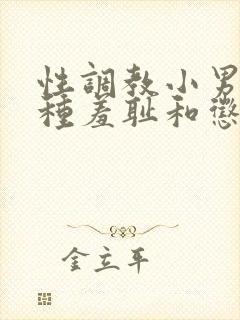 性調教小男
種羞耻和懲
金立平